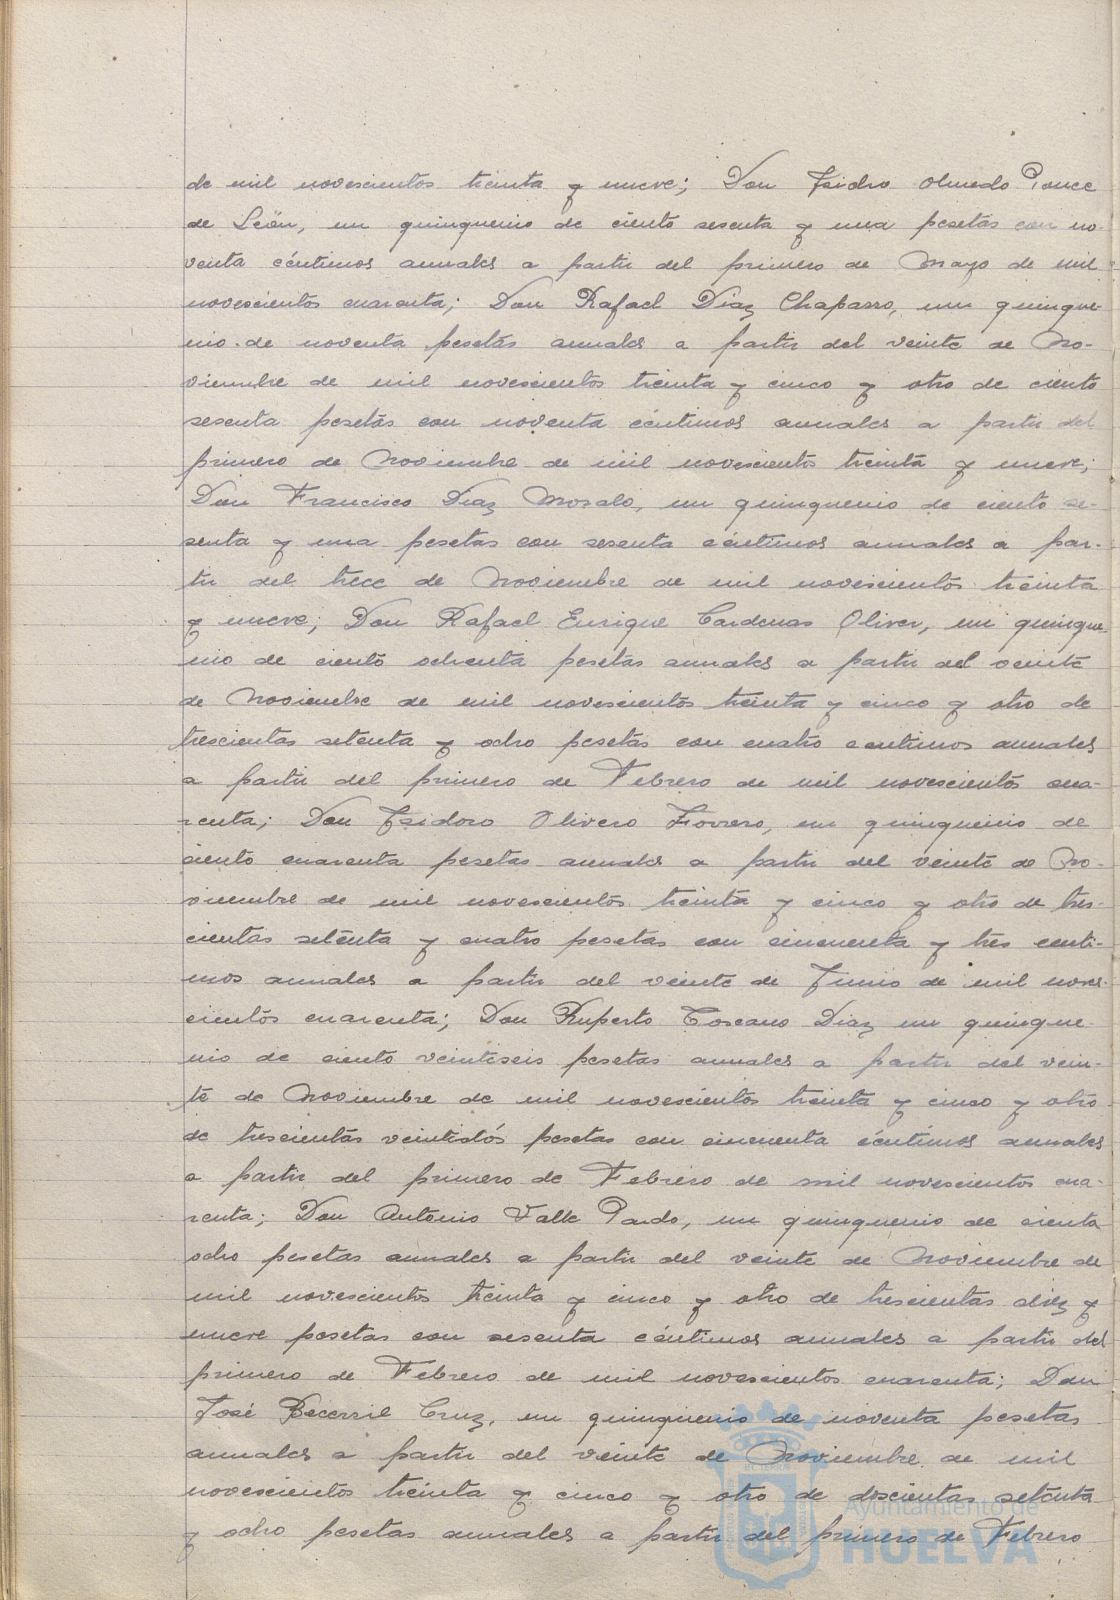 de mil novescientos treinta y nueve; Don Isidro Olmedo Ponce
de León, un quinquenio de ciento sesenta y una pesetas con no-
venta céntimos anuales a partir del primero de Mayo de mil
novescientos cuarenta; Don Rafael Diaz Chaparro, un quinque-
nio de noventa pesetas anuales a partir del veinte de No-
viembre de mil novescientos treinta y cinco y otro de ciento
sesenta pesetas con noventa céntimos anuales a partir del
primero de Noviembre de mil novescientos treinta y nueve;
Don Francisco Diaz Moralo, un quinquenio de ciento se-
senta y una pesetas con sesenta céntimos anuales a par-
tir del trece de Noviembre de mil novescientos treinta
y nueve; Don Rafael Enrique Cardenas Oliver, un quinque-
nio de ciento ochenta pesetas anuales a partir del veinte
de Noviembre de mil novescientos treinta y cinco y otro de
trescientas setenta y ocho pesetas con cuatro centimos anuales
a partir del primero de Febrero de mil novescientos cua-
renta; Don Isidoro Olivero Forrero, un quinquenio de
ciento cuarenta pesetas anuales a partir del veinte de No-
viembre de mil novescientos treinta y cinco y otro de tres-
cientas setenta y cuatro pesetas con cincuenta y tres centi-
mos anuales a partir del veinte de Junio de mil noves-
cientos cuarenta; Don Ruperto Toscano Diaz un quinque-
nio de ciento veintiseis pesetas anuales a partir del vein-
te de Noviembre de mil novescientos treinta y cinco y otro
de trescientas veintidós pesetas con cincuenta céntimos anuales
a partir del primero de Febrero de mil novescientos cua-
renta; Don Antonio Valle Pardo, un quinquenio de ciento
ocho pesetas anuales a partir del veinte de Noviembre de
mil novescientos treinta y cinco y otro de trescientas diez y
nueve pesetas con sesenta céntimos anuales a partir del
primero de Febrero de mil novescientos cuarenta; Don
José Becerril Cruz, un quinquenio de noventa pesetas
anuales a partir del veinte de Noviembre de mil
novescientos treinta y cinco y otro de doscientas setenta
y ocho pesetas anuales a partir del primero de Febrero
Ayuntamiento de
HUELVA